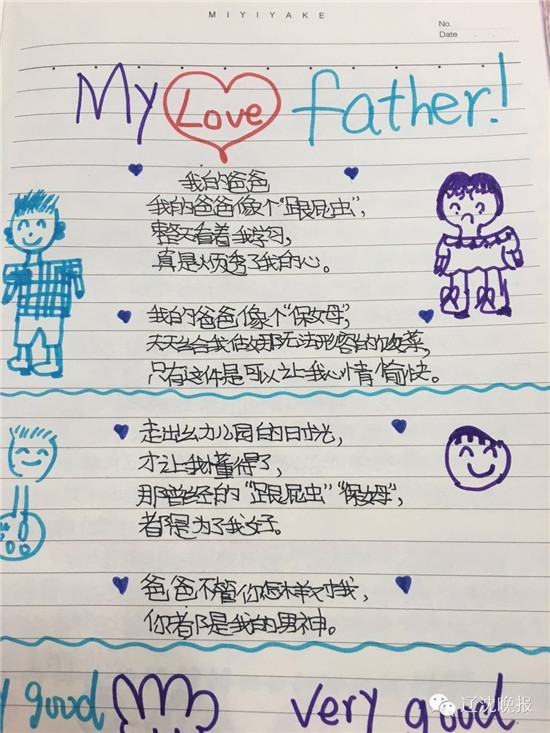 MIYIYAKE
No.
Date
My Love father!
我的爸爸
我的爸爸像个“跟屁虫”，
整天看着我学习，
真是烦透了我的心。
我的爸爸像个“保姆”，
天天给我做那无法形容的饭菜，
只有这件是可以让我心情愉快。
走出幼儿园的时光，
才让我懂得了，
那曾经的“跟屁虫”“保姆”，
都是为了我好。
爸爸不管你怎样对我，
你都是我的男神。
y good very good
辽沈晚报